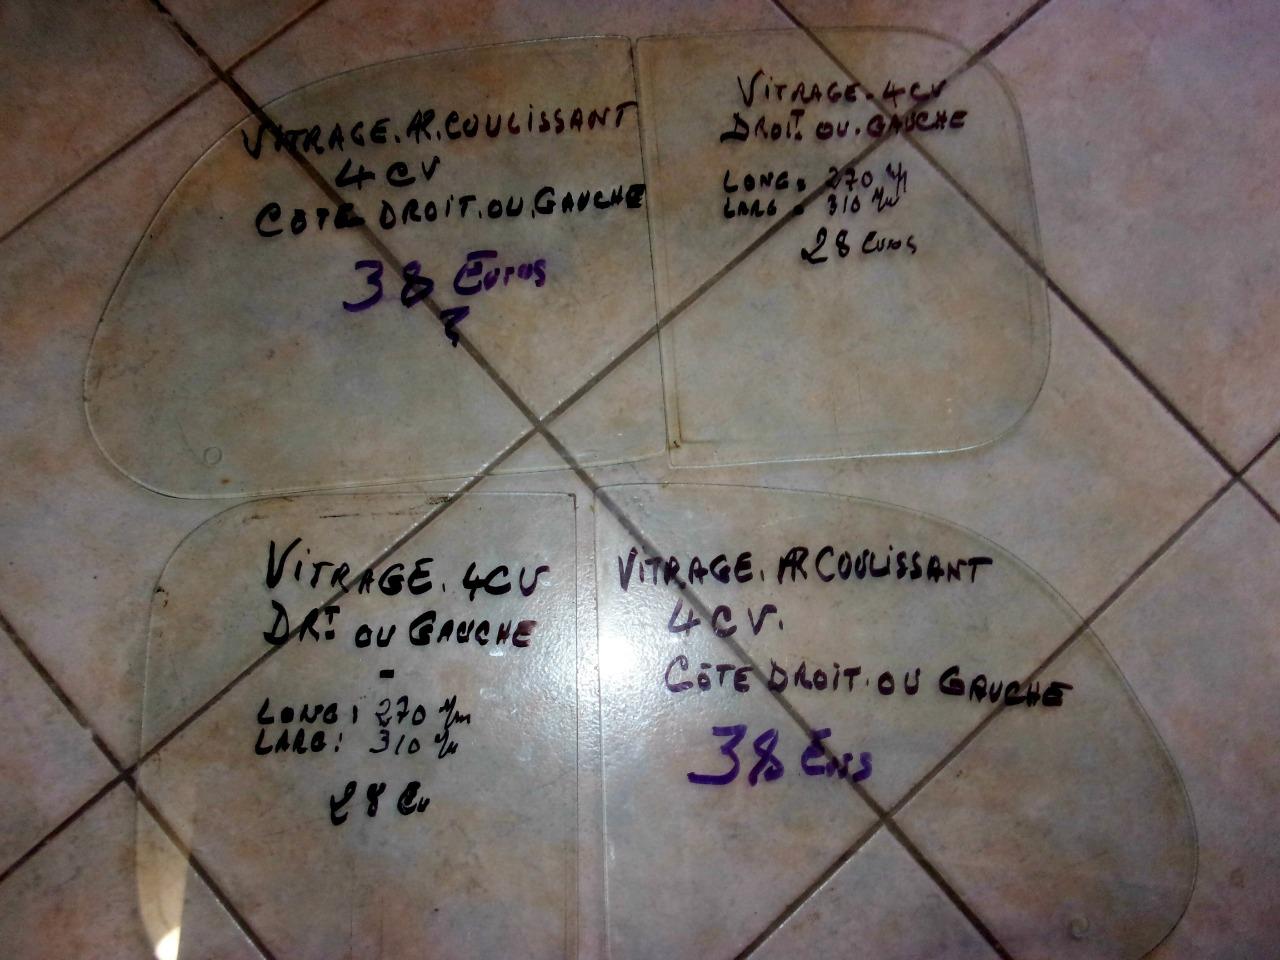 VITRAGE. AR. COULISSANT
4 CV
COTE DROIT. OU. GAUCHE
38 Euros
VITRAGE. 4CV
DROIT. OU. GAUCHE
LONG: 270 m/m
LARG: 310 m/m
28 Euros
VITRAGE. 4CV
DRT. OU GAUCHE
-
LONG: 270 m/m
LARG: 310 m/m
28 Eu
VITRAGE. AR COULISSANT
4 CV.
CÔTE DROIT. OU GAUCHE
38 Euros